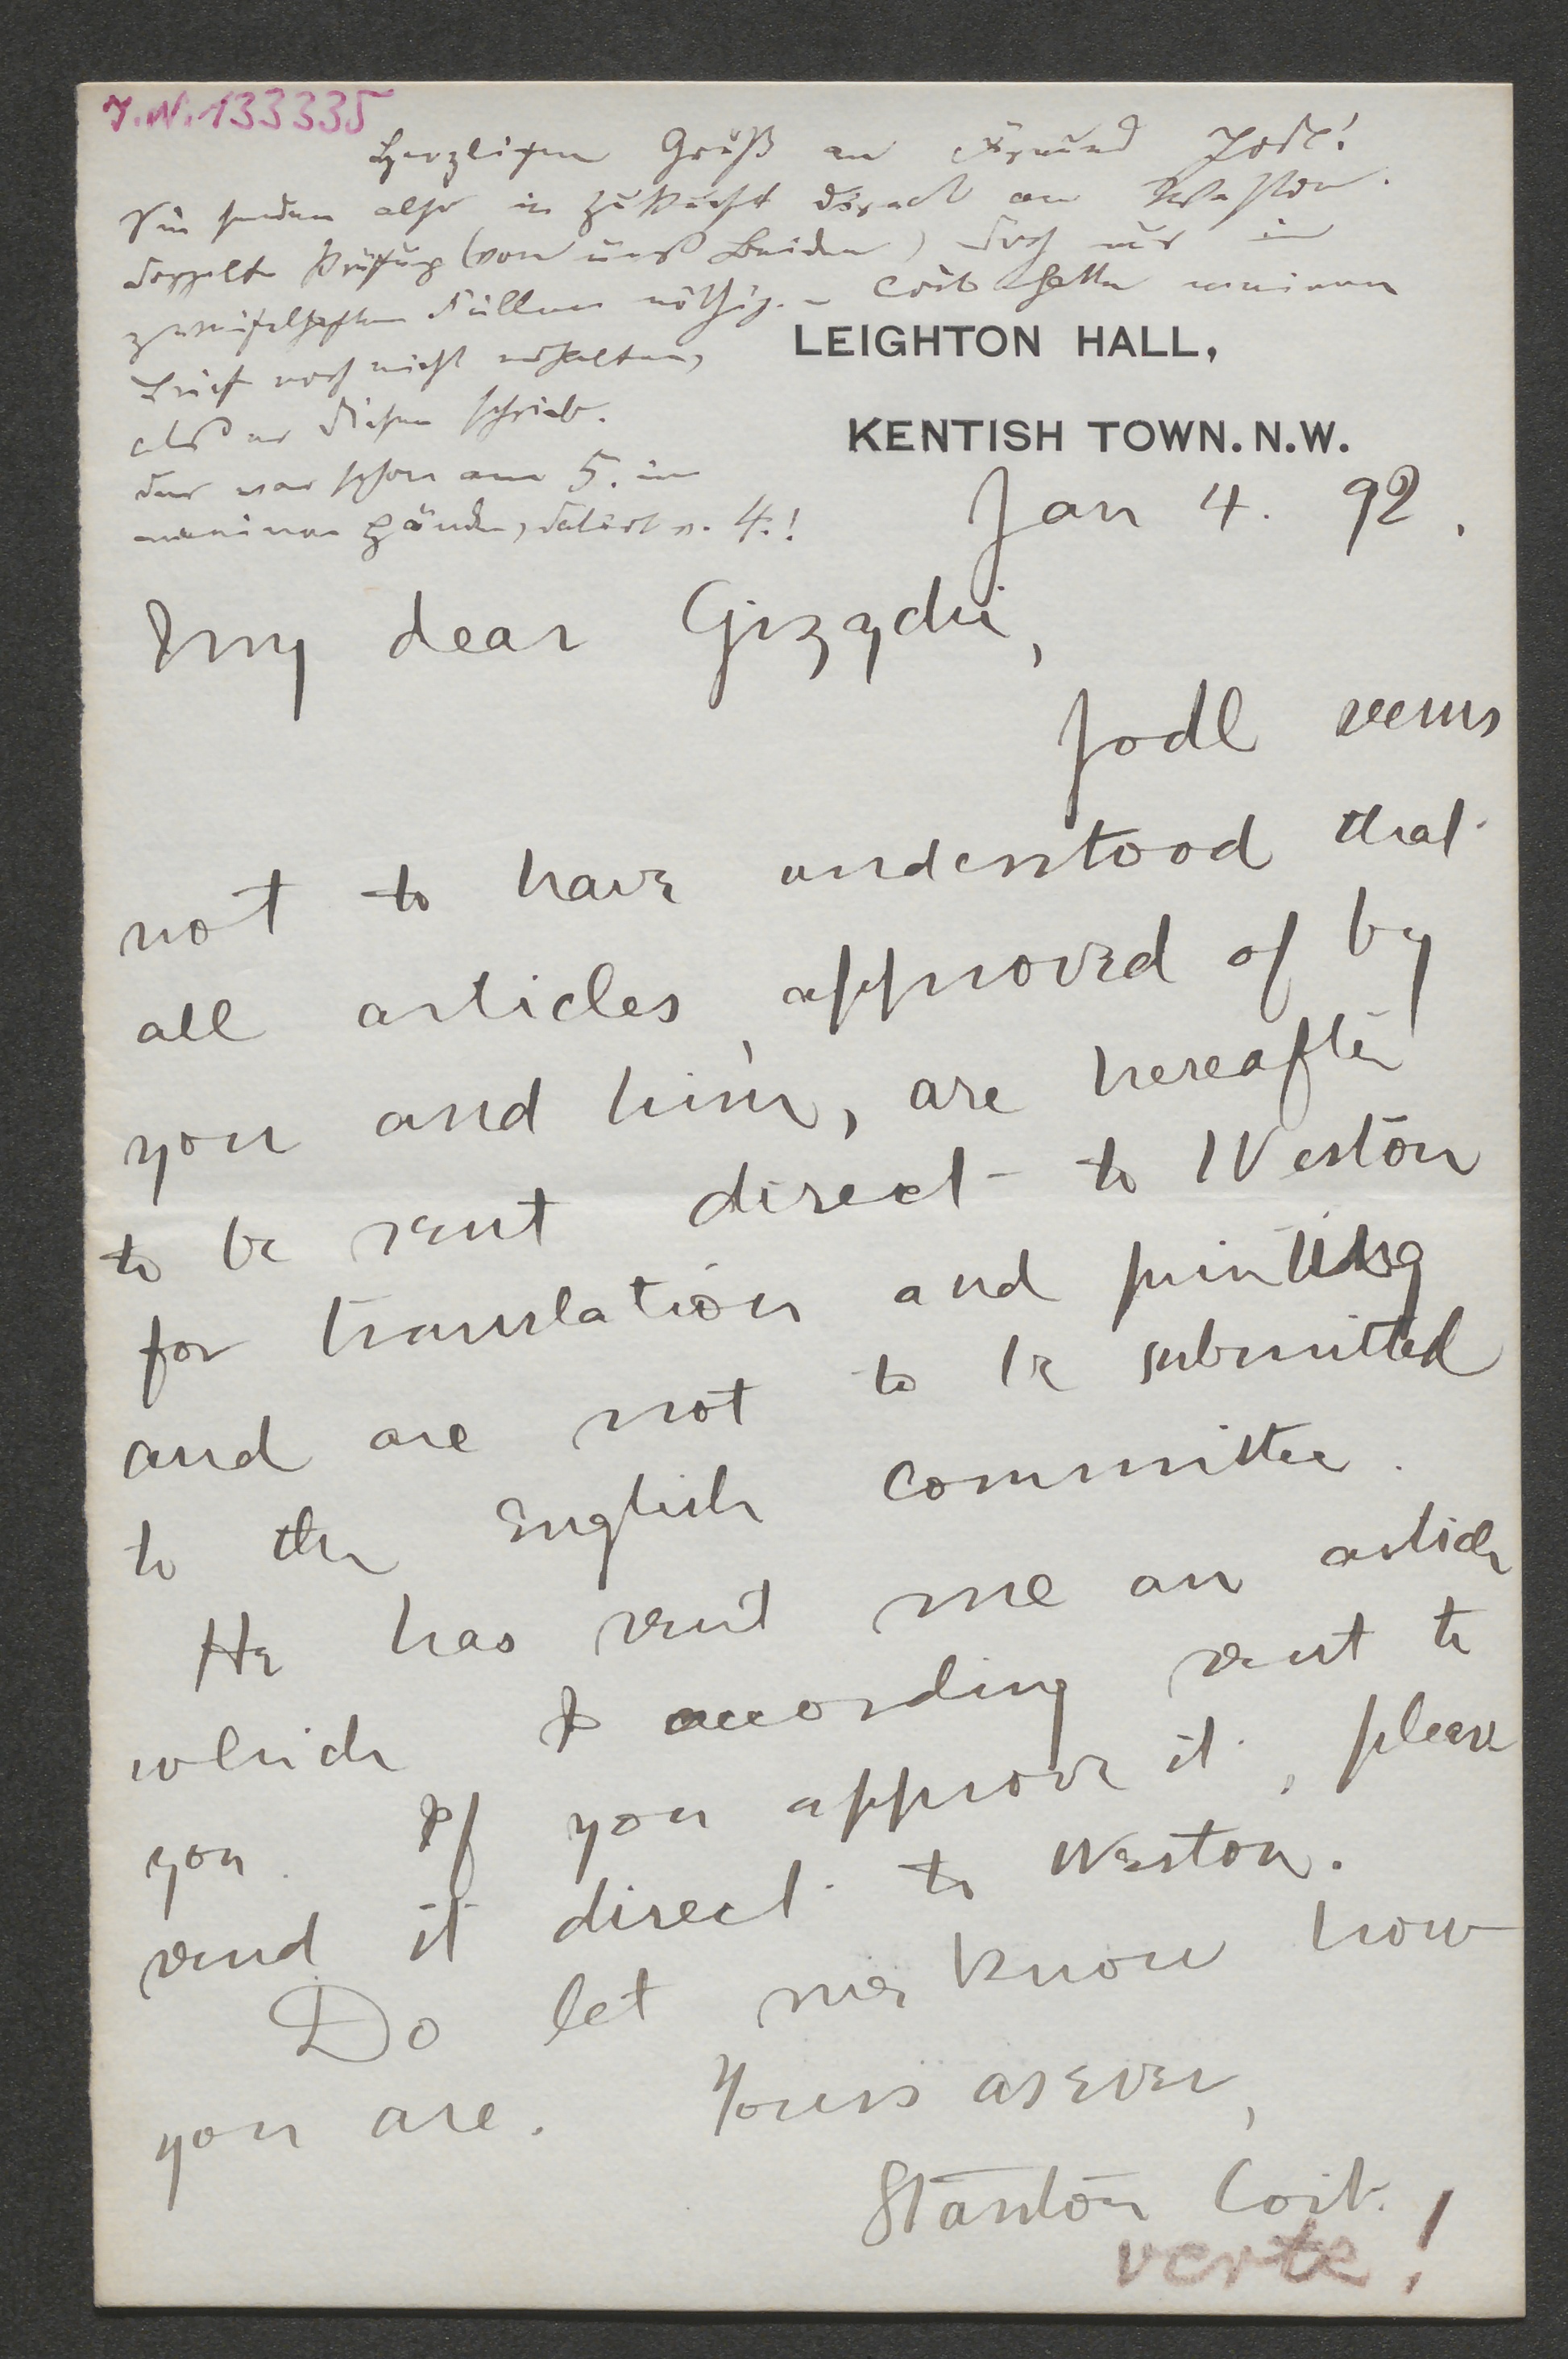 J.N. 133335
Herzlichen Gruß an Freund Jodl!
Sie senden also in Zukunft direct an Weston.
Doppelte Prüfung (von uns Beiden) doch nur in
zweifelhaften Fällen nöthig. – Coit hatte meinen
Brief noch nicht erhalten,
als er diesen schrieb.
Der war schon am 5. in
meinen Händen, datirt v. 4.!
LEIGHTON HALL,
KENTISH TOWN. N.W.
Jan 4. 92.
My dear Gizycki,
Jodl seems
not to have understood that
all articles, approved of by
you and him, are hereafter
to be sent direct to Weston
for translation and printing
and are not to be submitted
to the English committee.
He has sent me an article
which I according sent to
you. If you approve it, please
send it direct to Weston.
Do let me know how
you are. Yours as ever,
Stanton Coit.
verte!